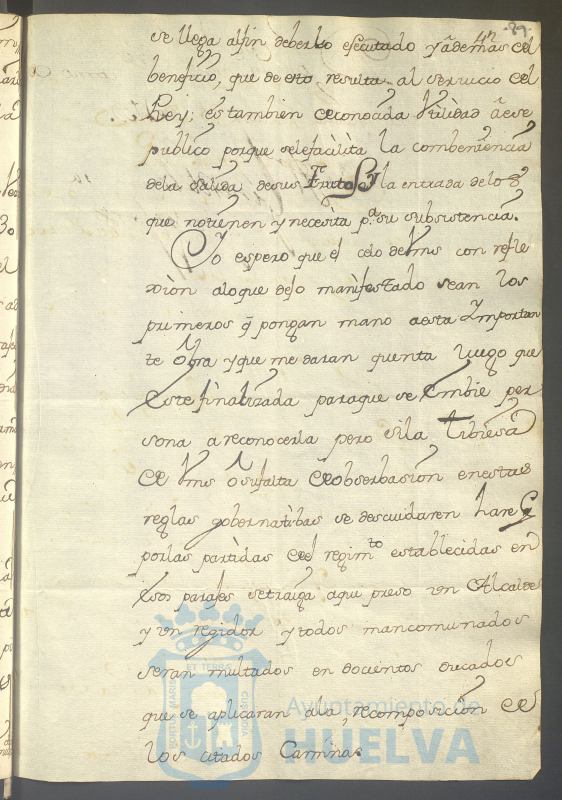 89.
se llega alfin deberlo efecutado yademas del
beneficio, que de esto resulta al servicio del
Rey; es tambien deconocada Vtilidad
publico porque selefacilita la combeniencia
dela salida desus Frutos, y la entrada delos
que notienen y necesita p.ª su subsistencia.
Yo espero que el celo deVms con refle
xion aloque defo manifestado sean los
primeros q̃ pongan mano aesta Ymportan
te obra yque me daran quenta luego que
Este finalizada paraque se Embie per
sona areconocerla pero sila tibiesa
de Vms Osufalta deobserbasion enestas
reglas gobernatibas se descuidaren hare q
porlas partidas del regim.to establecidas en
Esos parages setraiga aqui preso vn Alcalde
y vn regidor y todos mancomunados
seran multados en docientos ducados
que se aplicaran ala recomposicion de
los citados Caminos.
BONTUS MARIS
ET TERRÆ
CUSTODIA
Ayuntamiento de
HUELVA